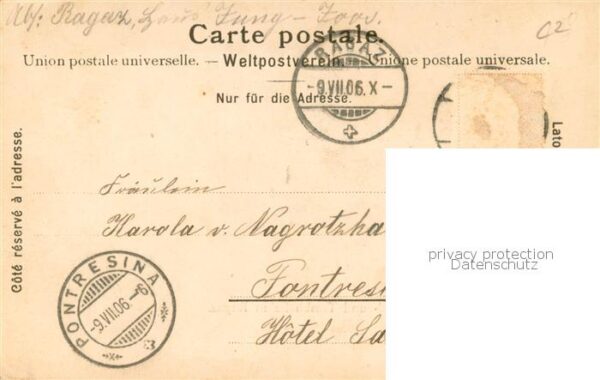 Abs: Ragaz, Haus Jung - Joos.
C2
Carte postale.
Union postale universelle. — Weltpostverein. — Unione postale universale.
Nur für die Adresse.
RAGAZ
-9.VII.06.X-
Côté réservé à l'adresse.
Lato
Fräulein
Karola v. Nagrotzha
Pontresi
Hôtel Sa
PONTRESINA
-9.VII.06.-9
privacy protection
Datenschutz